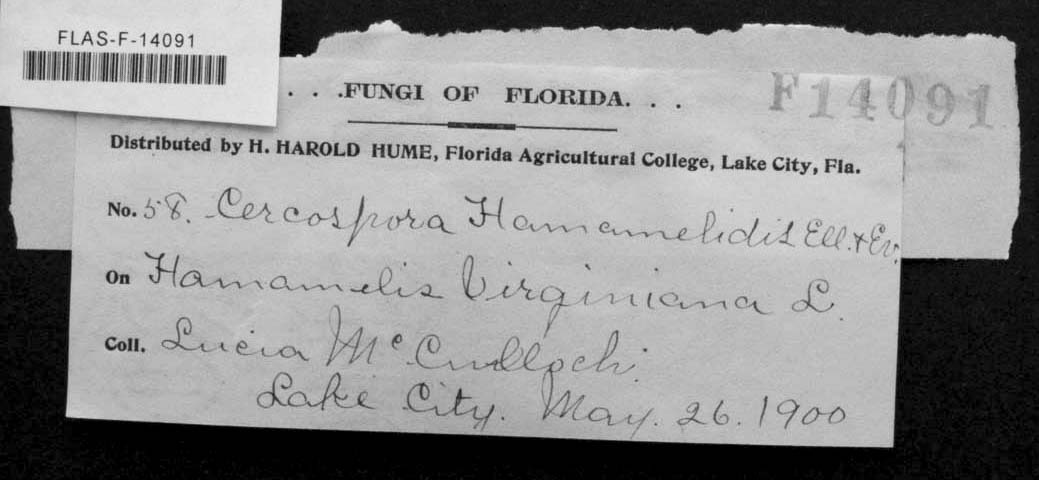 FLAS-F-14091
. . .FUNGI OF FLORIDA. . .
F14091
Distributed by H. HAROLD HUME, Florida Agricultural College, Lake City, Fla.
No. 58. Cercospora Hamamelidis Ell. & Ev.
On Hamamelis Virginiana L.
Coll. Lucia McCulloch.
Lake City. May. 26. 1900